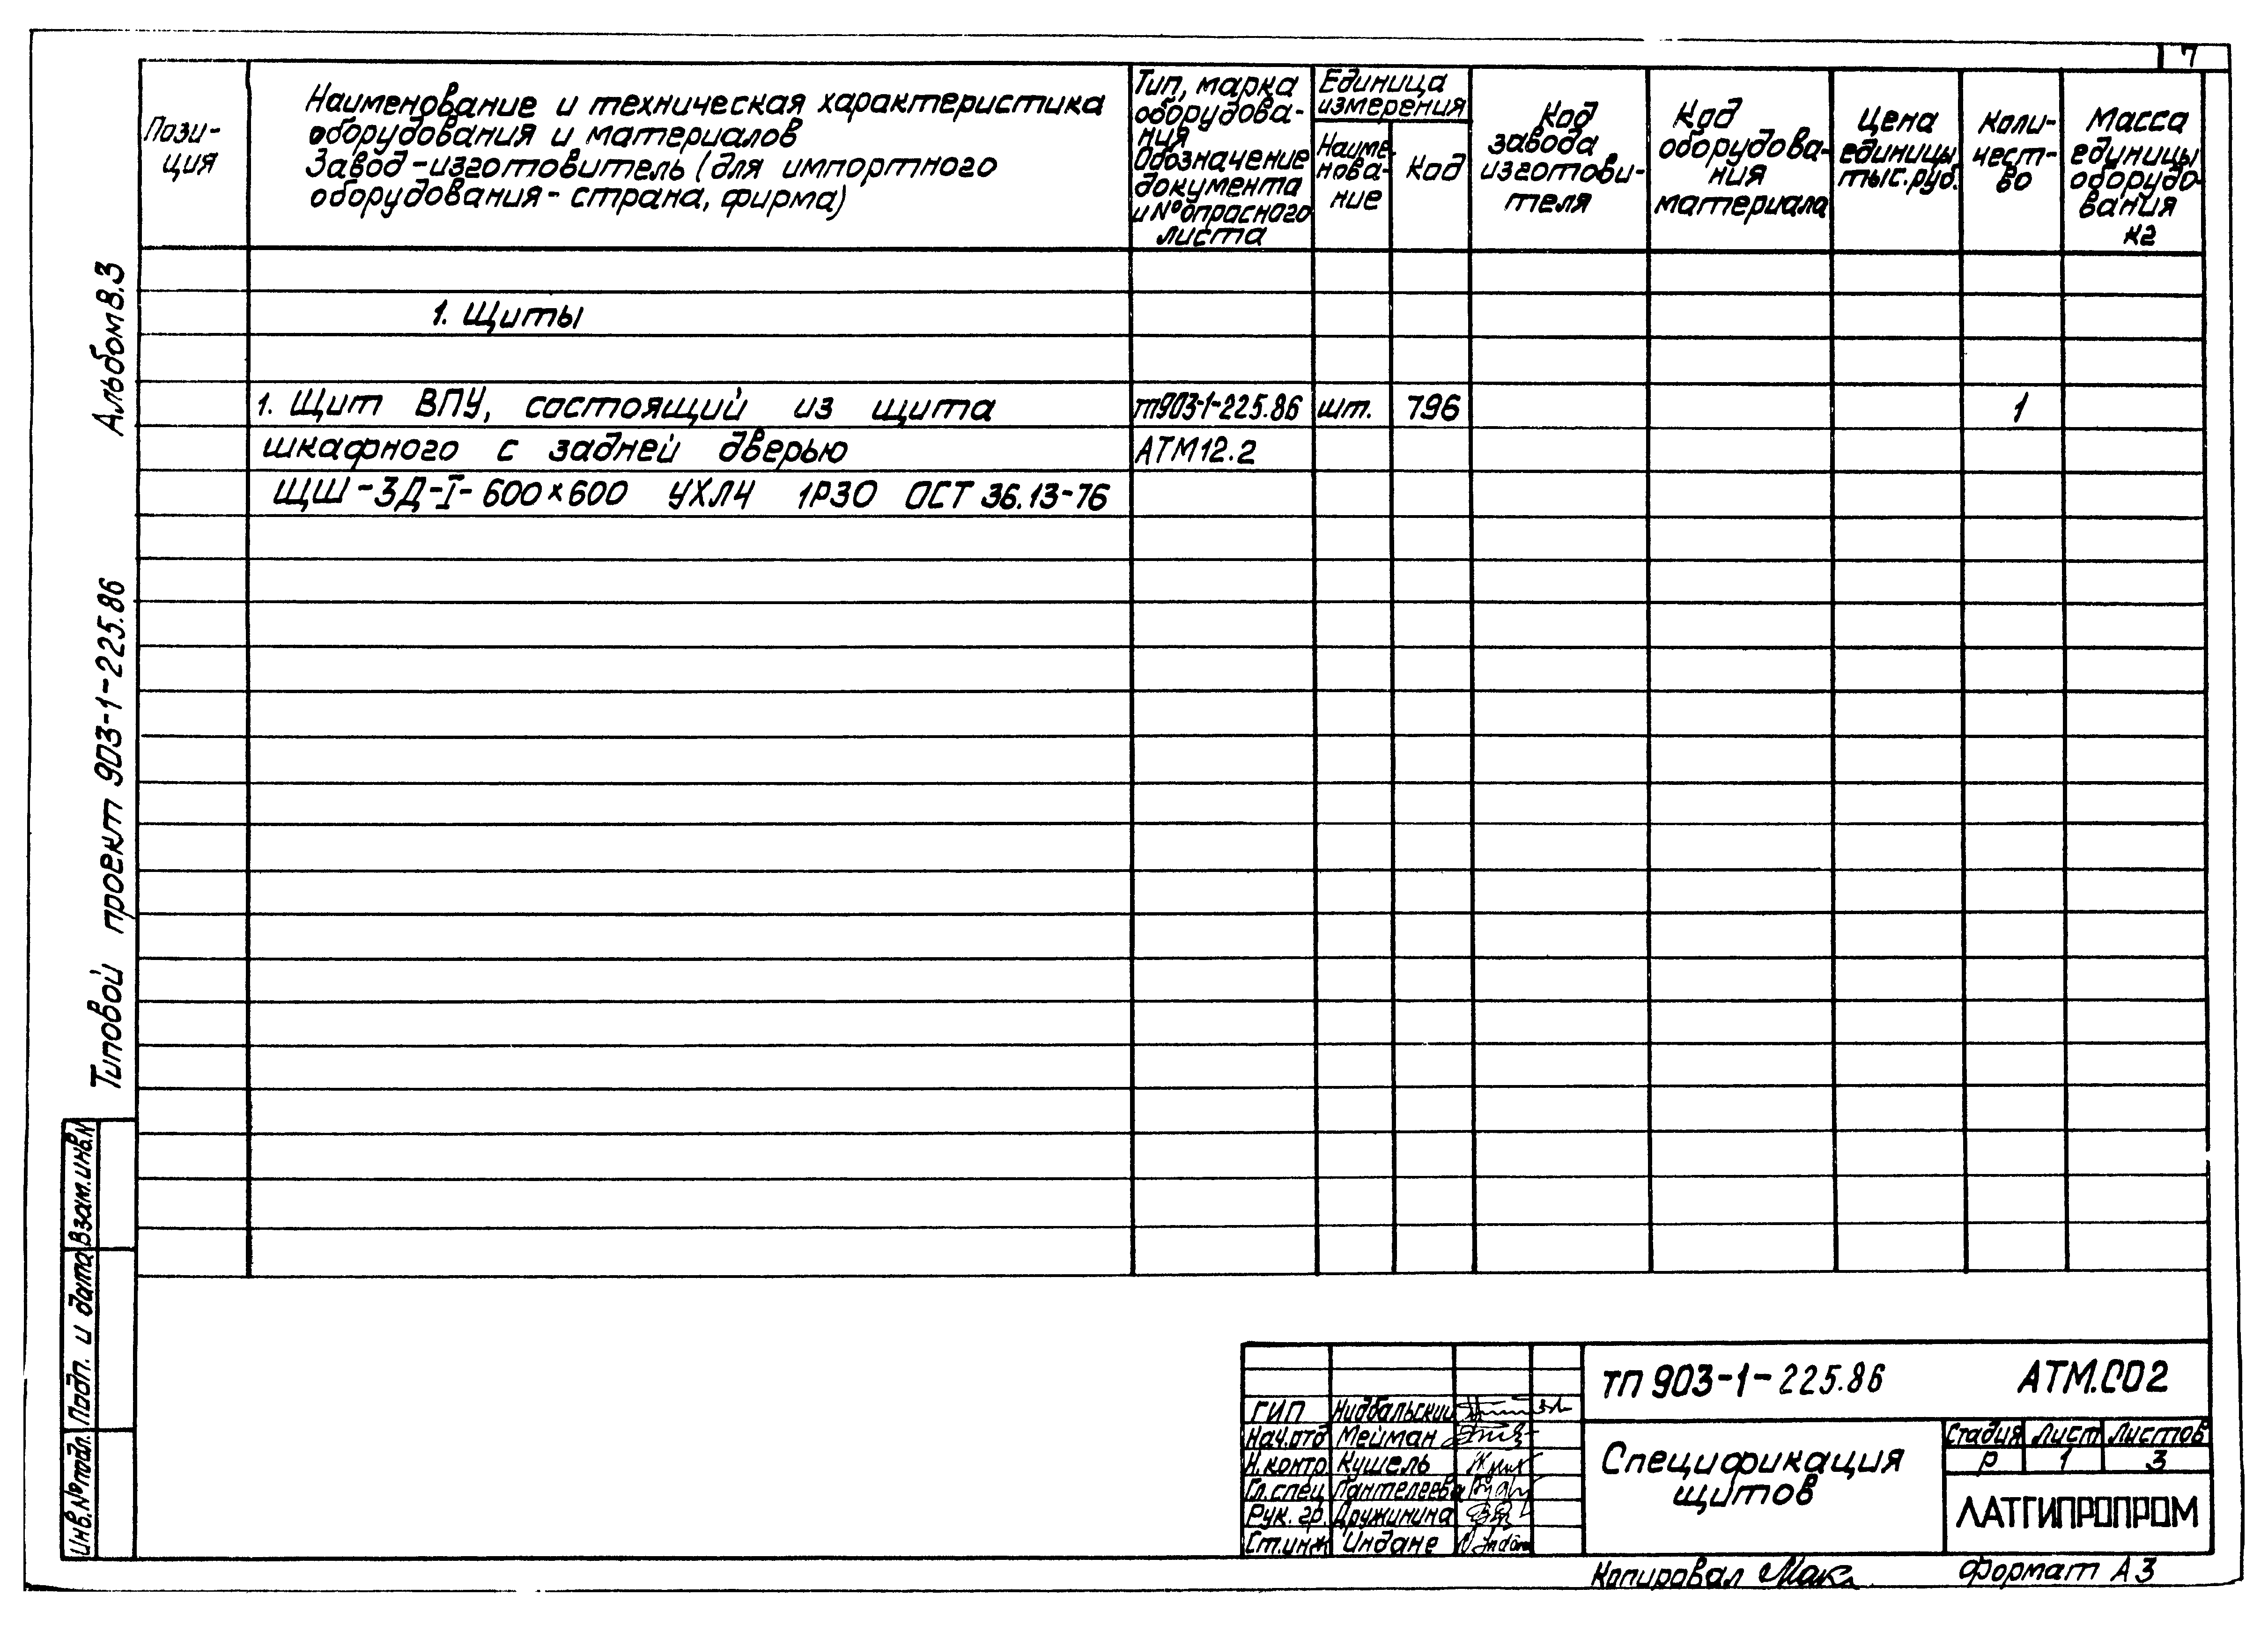 7
Пози-
ция
Наименование и техническая характеристика
оборудования и материалов
Завод-изготовитель (для импортного
оборудования - страна, фирма)
Тип, марка
оборудова-
ния
Обозначение
документа
и № опросного
листа
Единица
измерения
Наиме-
нова-
ние
Код
Код
завода
изготови-
теля
Код
оборудова-
ния
материала
Цена
единицы
тыс. руб.
Коли-
чест-
во
Масса
единицы
оборудо-
вания
кг
1. Щиты
1. Щит ВПУ, состоящий из щита тп903-1-225.86 шт. 796 1
шкафного с задней дверью АТМ12.2
ЩШ-ЗД-I-600×600 УХЛ4 1Р30 ОСТ 36.13-76
Альбом 8.3
Типовой проект 903-1-225.86
Взам.инв.N
Подп. и дата
Инв.№подл.
ТП 903-1-225.86 АТМ.СО2
ГИП Нидбальский
Нач.отд Мейман
Н.контр Кушель
Гл.спец Пантелеева
Рук. гр. Дружинина
Ст.инж Индане
Спецификация
щитов
Стадия Лист Листов
Р 1 3
ЛАТГИПРОПРОМ
Копировал Формат А3